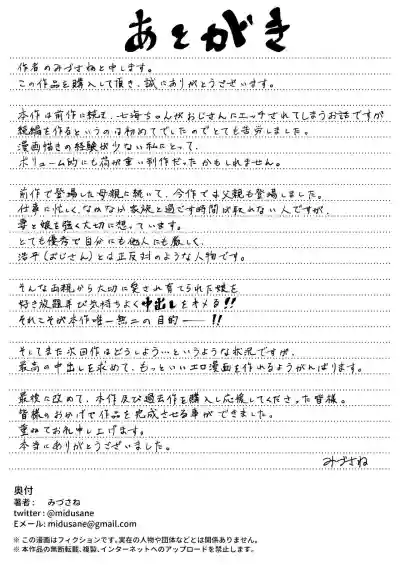 あとがき
作者のみづさねと申します。
この作品を購入して頂き、誠にありがとうございます。
本作は前作に続き、七海ちゃんがおじさんにエッチされてしまうお話ですが
続編を作るというのは初めてでしたのでとても苦労しました。
漫画描きの経験が少ない私にとって、
ボリューム的にも荷が重い制作だったかもしれません。
前作で登場した母親に続いて、今作では父親も登場しました。
仕事に忙しく、なかなか家族と過ごす時間が取れない人ですが、
妻と娘を強く大切に想っています。
とても優秀で自分にも他人にも厳しく、
浩平(おじさん)とは正反対のような人物です。
そんな両親から大切に愛され育てられた娘を
好き放題弄び気持ちよく中出しをキメる!!
それこそが本作唯一無二の目的――!!
そしてまた次回作はどうしよういというような状況ですが、
最高の中出しを求めて、もっといいエロ漫画を作れるようがんばります。
最後に改めて、本作及び過去作を購入し応援してくださった皆様。
皆様のおかげで作品を完成させる事ができました。
重ねてお礼申し上げます。
本当にありがとうございました。
みづさね
奥付
著者: みづさね
twitter : @midusane
Eメール: midusane@gmail.com
※ この漫画はフィクションです。実在の人物や団体などとは関係ありません。
※ 本作品の無断転載、複製、インターネットへのアップロードを禁止します。